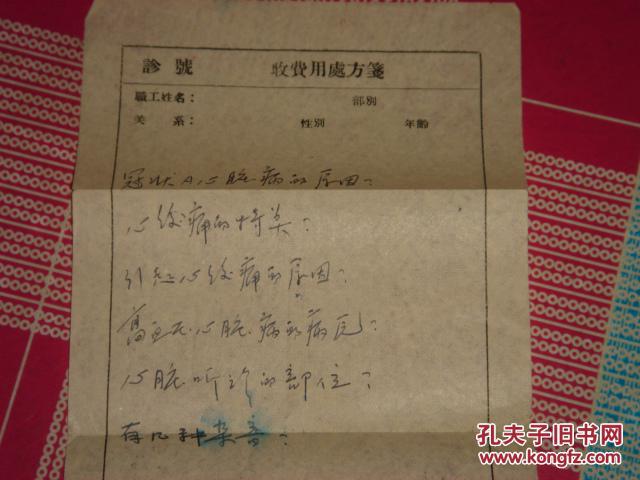 診號 收費用處方箋
職工姓名： 部別
关 系： 性別 年齡
冠状A心脏病的原因？
心绞痛的特类？
引起心绞痛的原因？
高血压心脏病的病因？
心脏听诊的部位？
有几种杂音？
孔夫子旧书网
www.kongfz.com